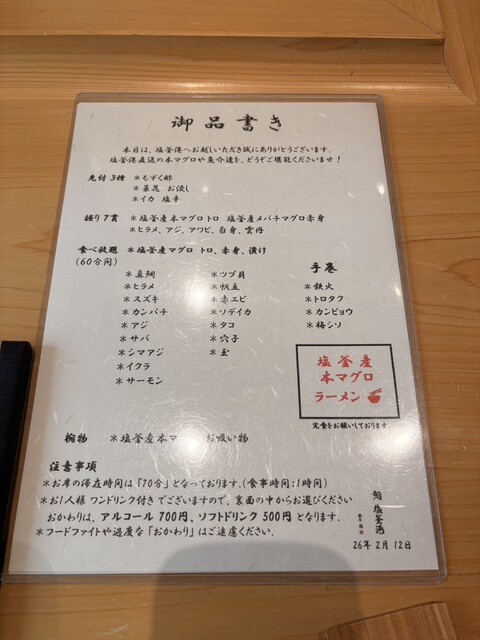 御品書き
本日は、塩釜港へお越しいただき誠にありがとうございます。
塩釜港直送の本マグロや魚介達を、どうぞご堪能くださいませ！
先付 3種 *もずく酢
*菜花 お浸し
*イカ 塩辛
握り 7貫 *塩釜産本マグロトロ 塩釜産メバチマグロ赤身
*ヒラメ、アジ、アワビ、白身、雲丹
食べ放題 *塩釜産マグロ トロ、赤身、漬け
(60分間)
*真鯛
*ヒラメ
*スズキ
*カンパチ
*アジ
*サバ
*シマアジ
*イクラ
*サーモン
*ツブ貝
*帆立
*赤エビ
*ソデイカ
*タコ
*穴子
*玉
手巻
*鉄火
*トロタク
*カンピョウ
*梅シソ
塩釜産
本マグロ
ラーメン
完食をお願いしております
椀物 *塩釜産本マ お吸い物
注意事項
*お席の滞在時間は「70分」となっております。(食事時間:1時間)
*お1人様 ワンドリンク付きでございますので、裏面の中からお選びください
おかわりは、アルコール 700円、ソフトドリンク 500円 となります。
*フードファイトや過度な「おかわり」はご遠慮ください.
鮨 塩釜港
26年 2月 12日